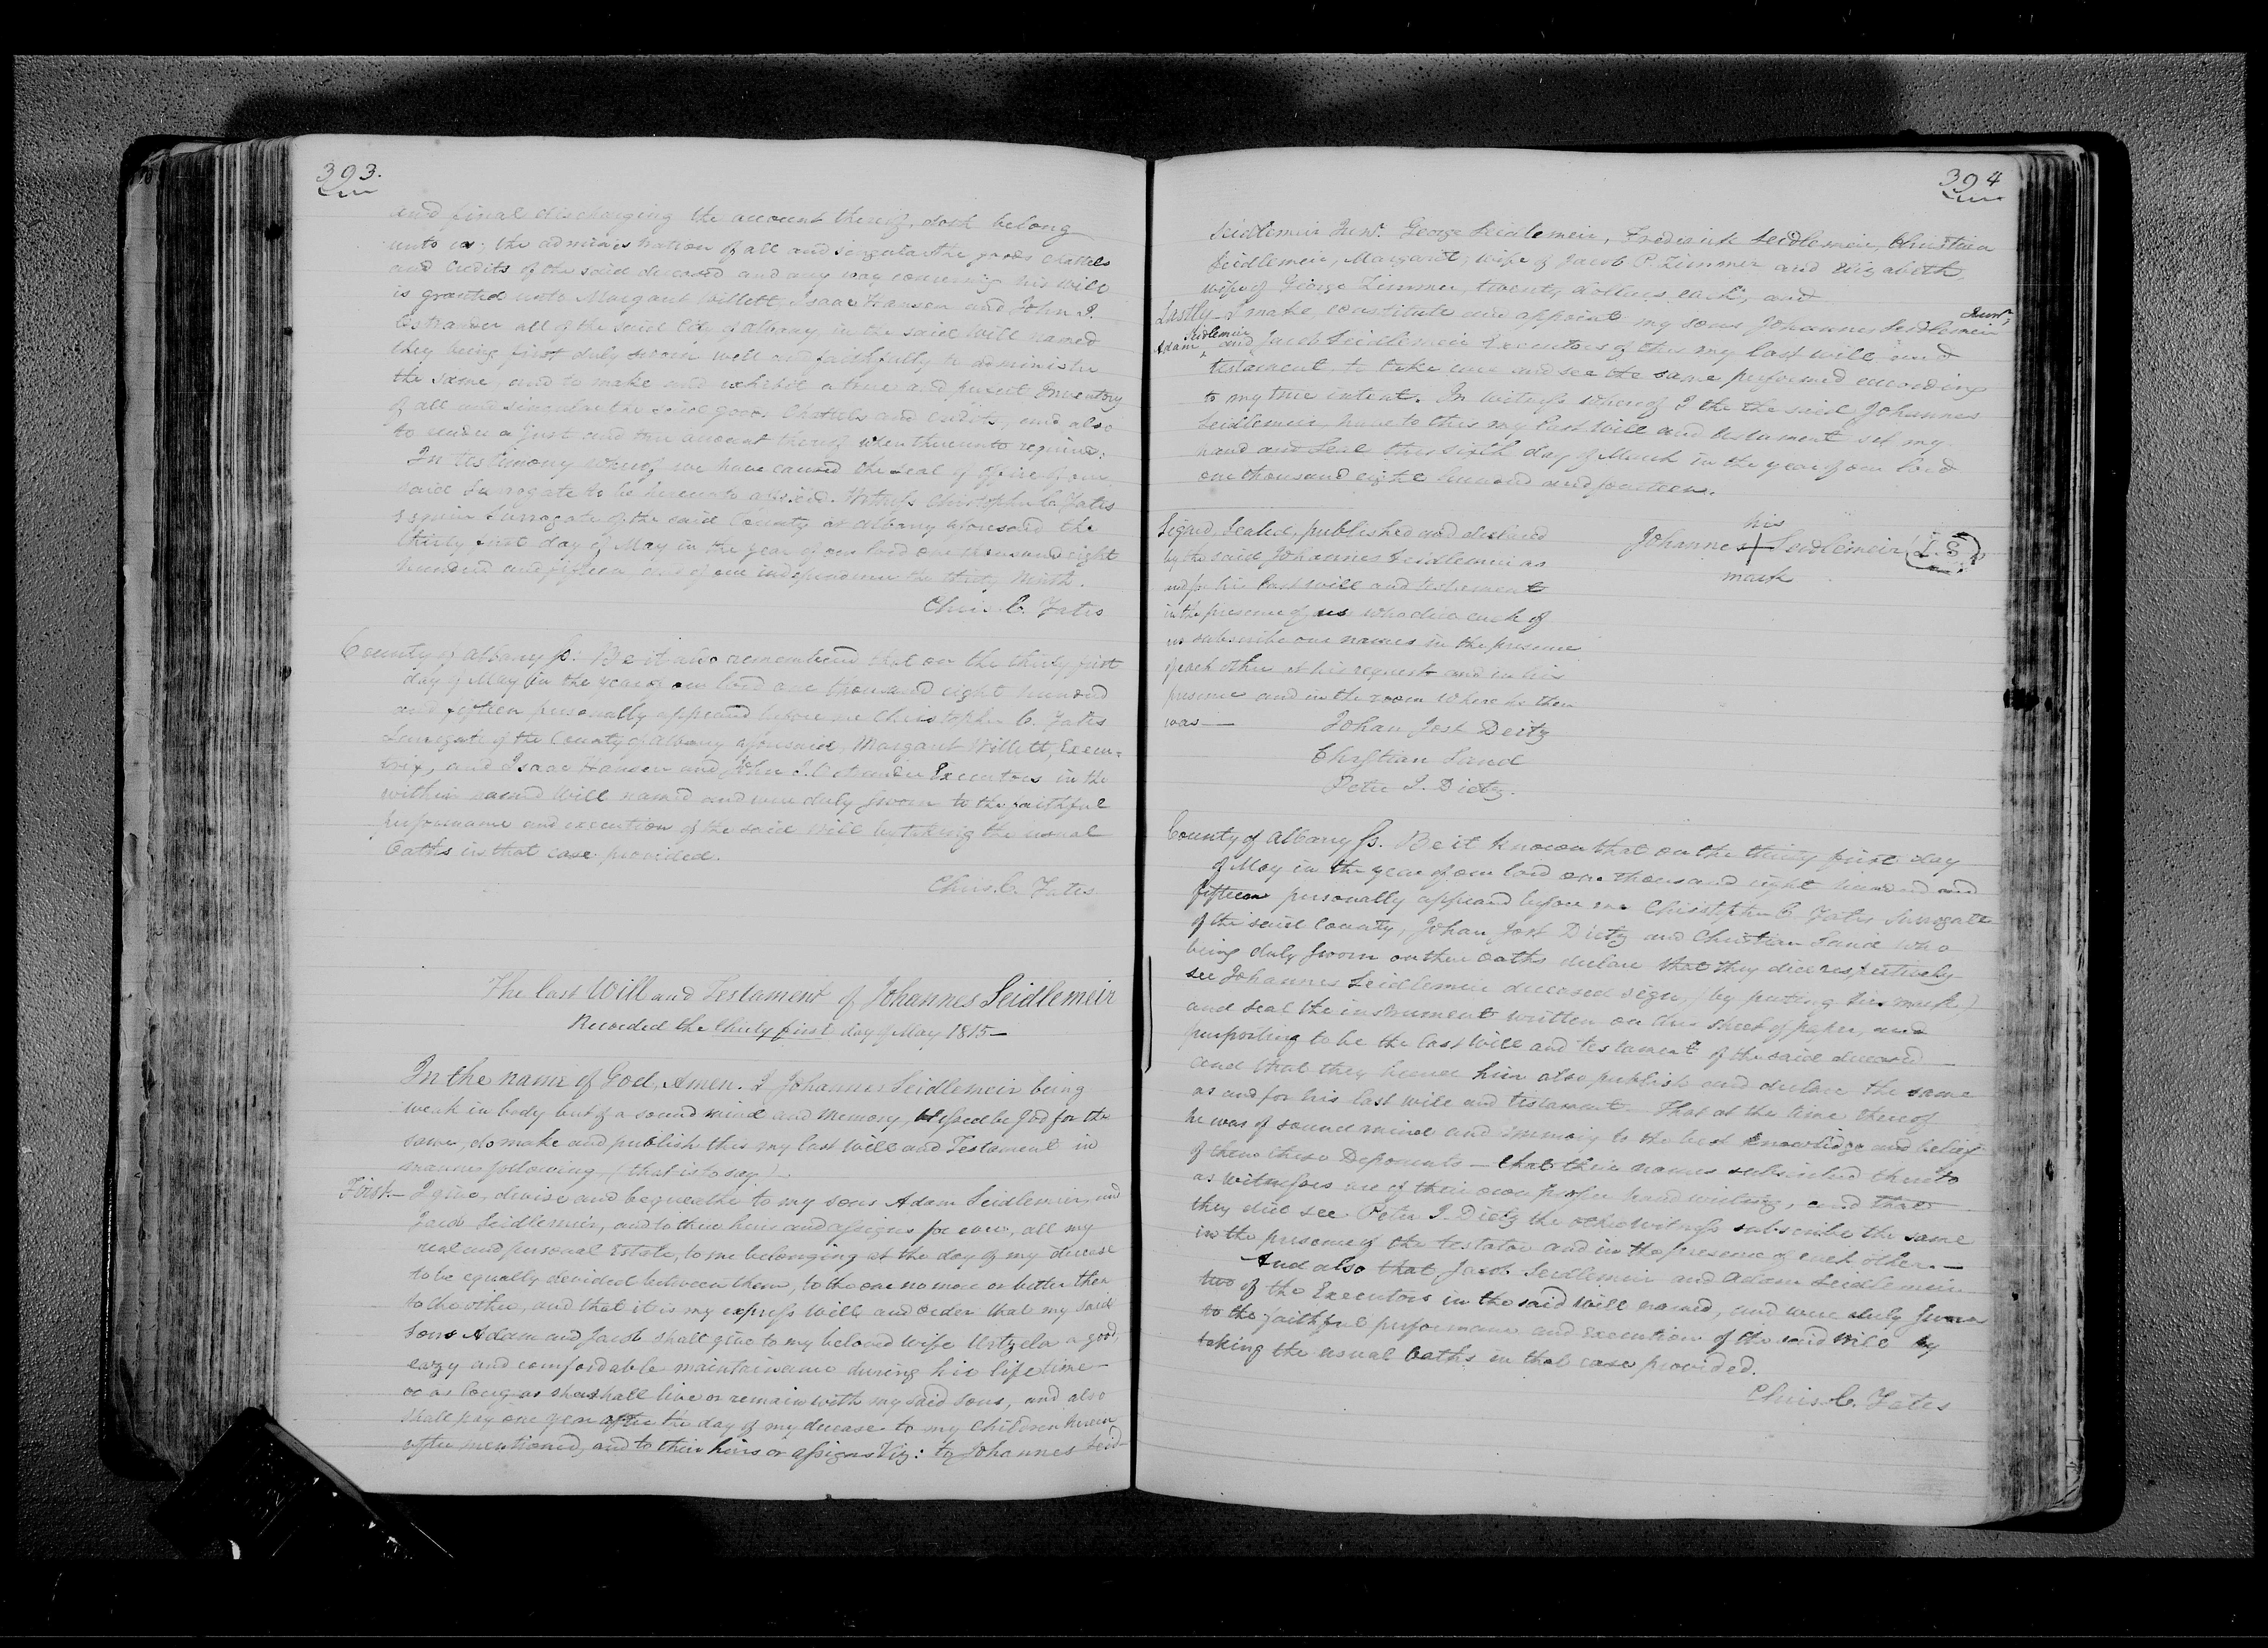 393.
and final discharging the account thereof, doth belong
unto us; the administration of all and singular the goods chattels
and Credits of the said deceased and any way concerning his will
is granted unto Margaret Willett, Isaac Hansen and John I.
Ostrander all of the said City of Albany in the said Will named
they being first duly sworn well and faithfully to administer
the same, and to make and exhibit a true and perfect Inventory
of all and singular the said goods Chattels and Credits, and also
to render a just and true account thereof when thereunto required.
In testimony whereof we have caused the seal of office of our
said Surrogate to be hereunto affixed. Witness Christopher C. Yates
Esquire Surrogate of the said County at Albany aforesaid the
thirty first day of May in the year of our lord one thousand eight
hundred and fifteen and of our independence the thirty Ninth.
Chris. C. Yates
County of Albany ss. Be it also remembered that on the thirty first
day of May in the year of our lord one thousand eight hundred
and fifteen personally appeared before me Christopher C. Yates
Surrogate of the County of Albany aforesaid, Margaret Willett, Execu=
trix, and Isaac Hansen and John I. Ostrander Executors in the
within named Will named and were duly sworn to the faithful
performance and execution of the said Will by taking the usual
Oaths in that case provided.
Chris. C. Yates
The last Will and Testament of Johannes Seidlemeir
Recorded the thirty first day of May 1815—
In the name of God, Amen. I Johannes Seidlemeir being
weak in body but of a sound mind and memory, blessed be God for the
same, do make and publish this my last Will and Testament in
manner following, (that is to say)—
First.— I give, devise and bequeathe to my sons Adam Seidlemeir, and
Jacob Seidlemeir, and to their heirs and assigns for ever, all my
real and personal Estate, to me belonging at the day of my decease
to be equally devided between them, to the one no more or better then
to the other, and that it is my express Will and Order that my said
Sons Adam and Jacob shall give to my beloved wife Urtzela a good,
eazy and comfordable maintainance during her life time—
or as long as she shall live or remain with my said sons, and also
shall pay one year after the day of my decease to my Children herein
after mentioned, and to their heirs or assigns Viz: to Johannes Seid-
394
Seidlemeir Junr. George Seidlemeir, Frederick Seidlemeir, Christian
Seidlemeir, Margaret, wife of Jacob P. Zimmer and Elizabeth,
wife of George Zimmer, twenty dollars each, and
Lastly— I make constitute and appoint my sons Johannes Seidlemeir Junr,
Adam Seidlemeir and Jacob Seidlemeir Executors of this my last will and
testament, to take care and see the same performed according
to my true intent. In Witness whereof I the the said Johannes
Seidlemeir, have to this my last Will and testament set my
hand and Seal this sixth day of March in the year of our lord
one thousand eight hundred and fourteen.
Signed, Sealed, published and declared
by the said Johannes Seidlemeir as
and for his last will and testament
in the presence of us who did each of
us subscribe our names in the presence
of each other at his request and in his
presence and in the room where he then
was—
his
Johannes + Seidlemeir (L.S.)
mark
Johan Jost Deitz
Christian Sand
Peter I. Dietz.
County of Albany ss. Be it known that on the thirty first day
of May in the year of our lord one thousand eight hundred and
fifteen personally appeared before me Christopher C. Yates Surrogate
of the said County, Johan Jost Dietz and Christian Sand who
being duly sworn on their oaths declare that they did respectively
see Johannes Seidlemeir deceased sign, (by puting his mark)
and seal the instrument written on this sheet of paper, and
purporting to be the last Will and testament of the said deceased
and that they heard him also publish and declare the same
as and for his last will and testament. That at the time thereof
he was of sound mind and memory to the best knowledge and belief
of them these Deponents— that their names subscribed thereto
as witnesses are of their own proper hand writing, and that
they did see Peter I. Dietz the other witness subscribe the same
in the presence of the testator and in the presence of each other.—
And also that Jacob Seidlemeir and Adam Seidlemeir
two of the Executors in the said Will named, and were duly sworn
to the faithful performance and execution of the said Will by
taking the usual Oaths in that case provided.
Chris. C. Yates